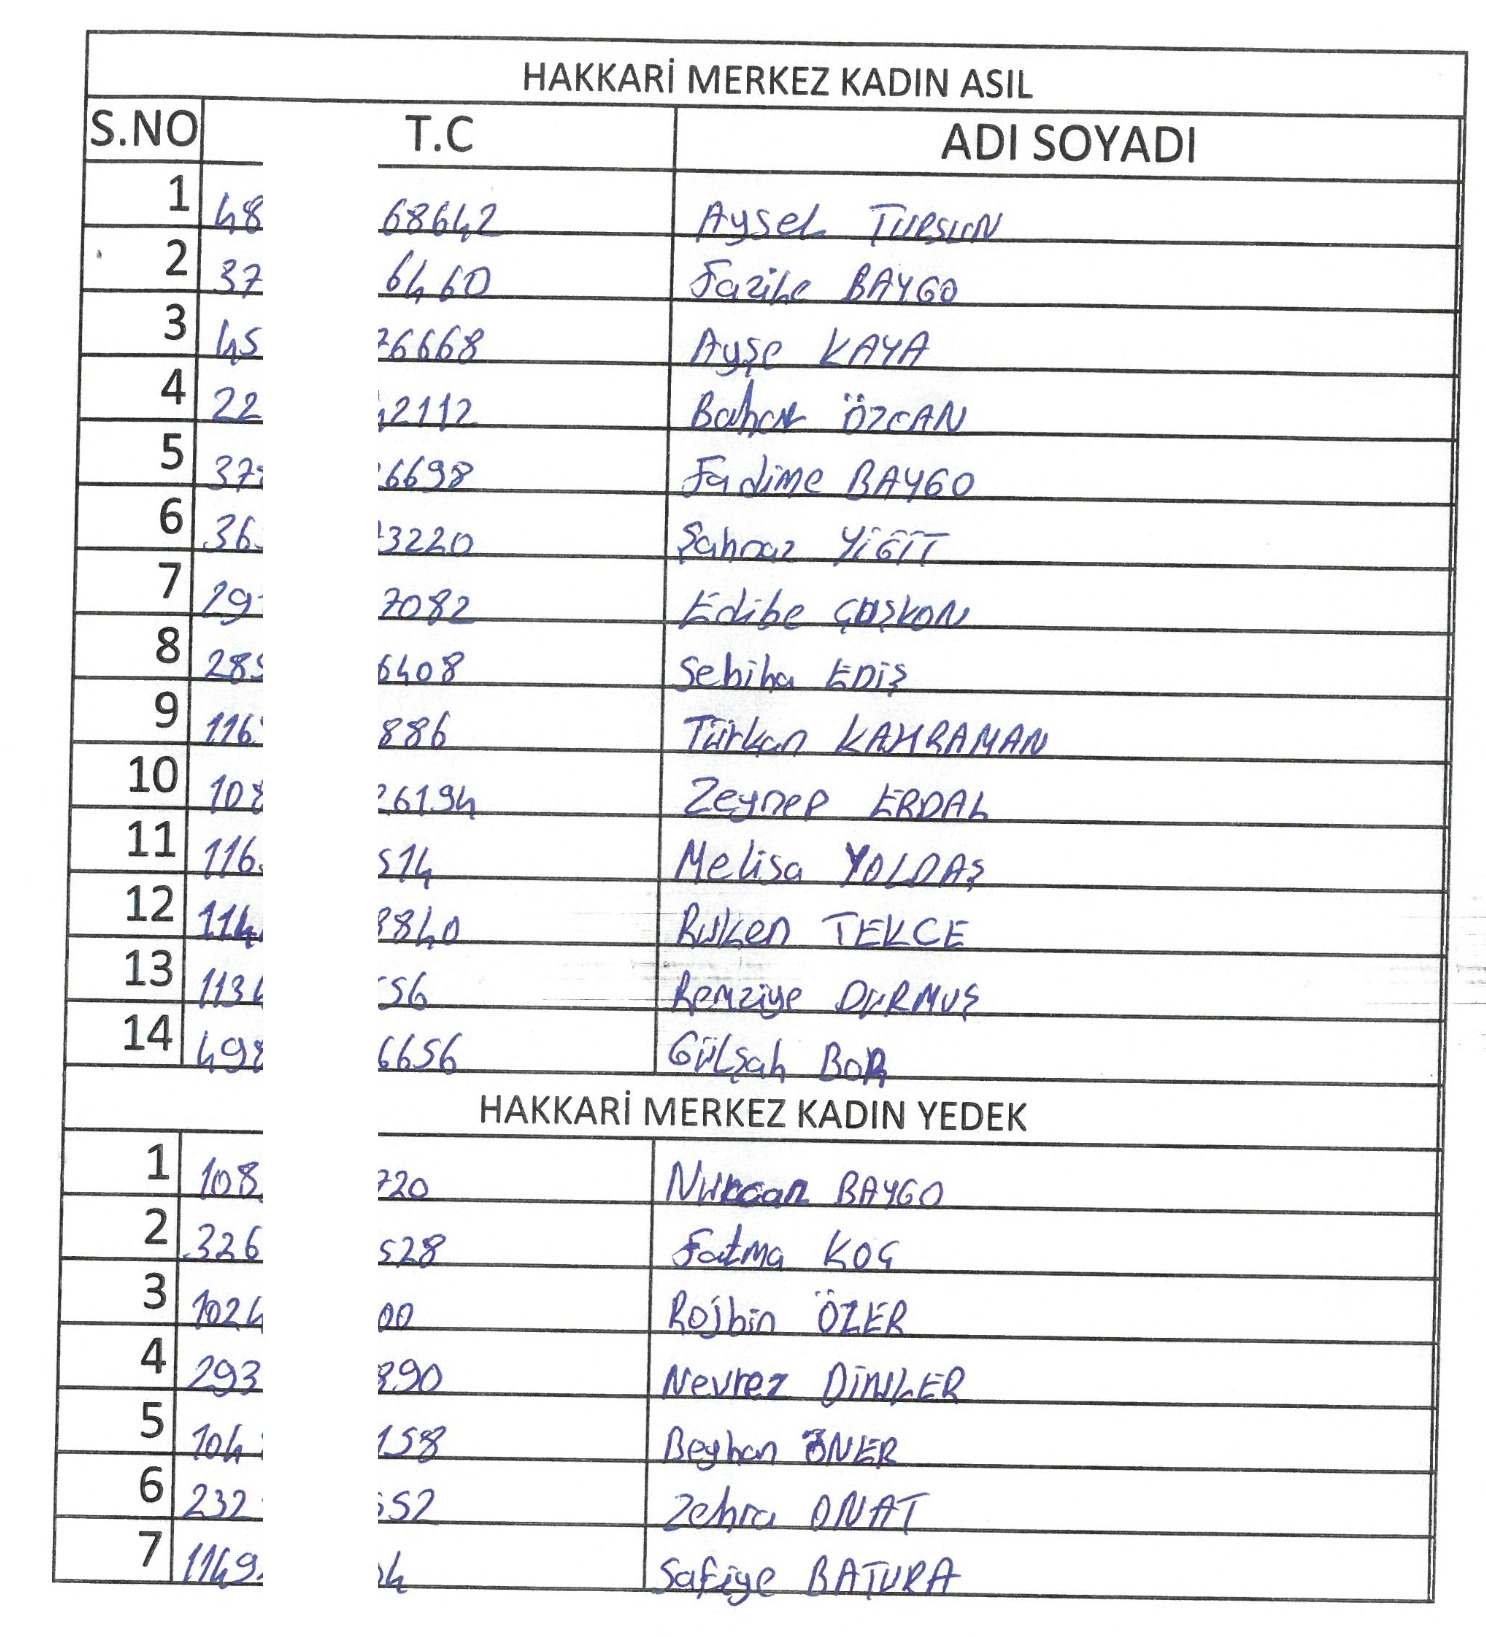 HAKKARİ MERKEZ KADIN ASIL
S.NO T.C ADI SOYADI
1 48 68642 Aysel TURSUN
2 37 6460 Fazile BAYGO
3 45 76668 Ayşe KAYA
4 22 42112 Bahar ÖZCAN
5 378 6698 Fadime BAYGO
6 36 3220 Şahnaz YİĞİT
7 29 7082 Edibe COŞKUN
8 285 6408 Sebiha EDİŞ
9 116 886 Türkan KAHRAMAN
10 108 26194 Zeynep ERDAL
11 116 514 Melisa YOLDAŞ
12 114 8840 Ruken TEKCE
13 113 56 Remziye DURMUŞ
14 498 6656 Gülşah BOR
HAKKARİ MERKEZ KADIN YEDEK
1 108 720 Nurcan BAYGO
2 326 528 Fatma KOÇ
3 1024 00 Rojbin ÖZER
4 293 890 Nevrez DİNLER
5 104 158 Beyhan ÖNER
6 232 552 Zehra ONAT
7 1149 4 Safiye BATURA